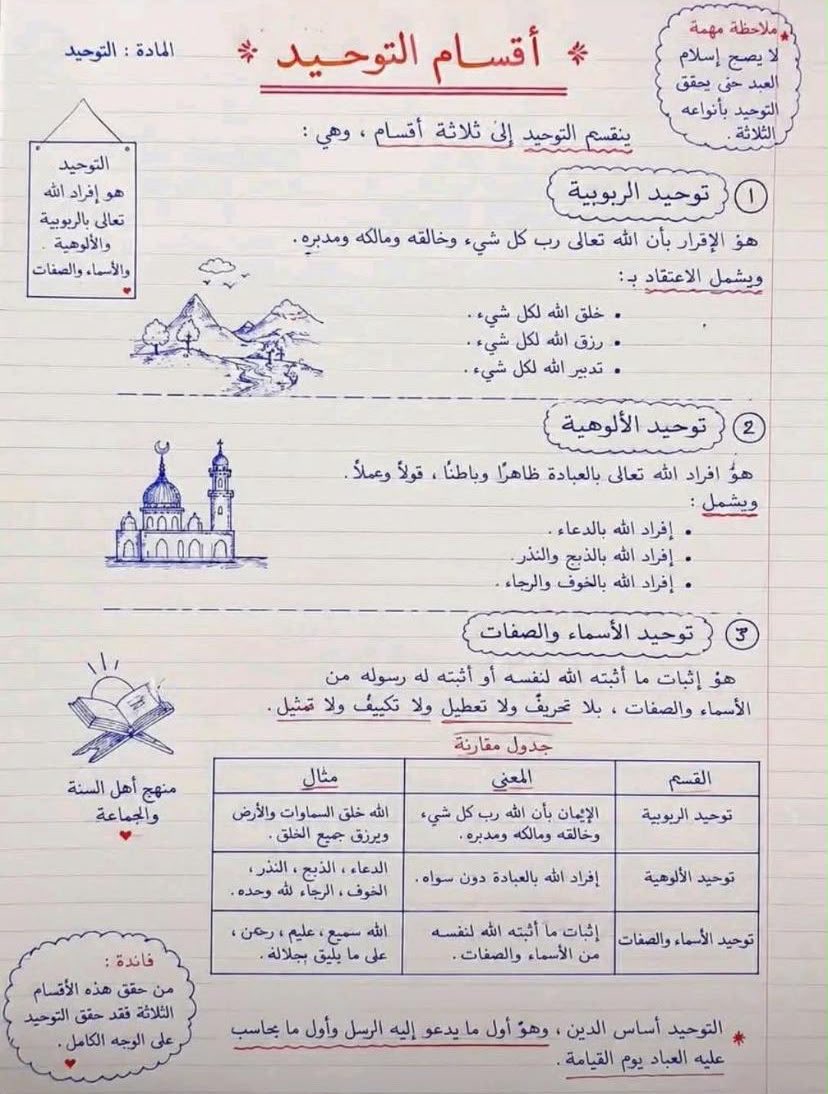 المادة : التوحيد
أقسام التوحيد
ملاحظة مهمة
لا يصح إسلام
العبد حتى يحقق
التوحيد بأنواعه
الثلاثة .
ينقسم التوحيد إلى ثلاثة أقسام ، وهي :
التوحيد
هو إفراد الله
تعالى بالربوبية
والألوهية .
والأسماء والصفات
١ توحيد الربوبية
هو الإقرار بأن الله تعالى رب كل شيء وخالقه ومالكه ومدبره.
ويشمل الاعتقاد بـ:
• خلق الله لكل شيء .
• رزق الله لكل شيء .
• تدبير الله لكل شيء .
2 توحيد الألوهية
هو افراد الله تعالى بالعبادة ظاهرًا وباطنًا ، قولاً وعملاً.
ويشمل :
• إفراد الله بالدعاء .
• إفراد الله بالذبح والنذر.
• إفراد الله بالخوف والرجاء .
3 توحيد الأسماء والصفات
هو إثبات ما أثبته الله لنفسه أو أثبته له رسوله من
الأسماء والصفات ، بلا تحريفٌ ولا تعطيل ولا تكييفُ ولا تمثيل .
منهج أهل السنة
والجماعة
جدول مقارنة
القسم المعنى مثال
توحيد الربوبية الإيمان بأن الله رب كل شيء الله خلق السماوات والأرض
وخالقه ومالكه ومدبره. ويرزق جميع الخلق .
توحيد الألوهية إفراد الله بالعبادة دون سواه. الدعاء ، الذبح ، النذر ،
الخوف ، الرجاء لله وحده.
توحيد الأسماء والصفات إثبات ما أثبته الله لنفسه الله سميع ، عليم ، رحمن ،
من الأسماء والصفات . على ما يليق بجلاله .
فائدة :
من حقق هذه الأقسام
الثلاثة فقد حقق التوحيد
على الوجه الكامل .
التوحيد أساس الدين ، وهو أول ما يدعو إليه الرسل وأول ما يحاسب
عليه العباد يوم القيامة .